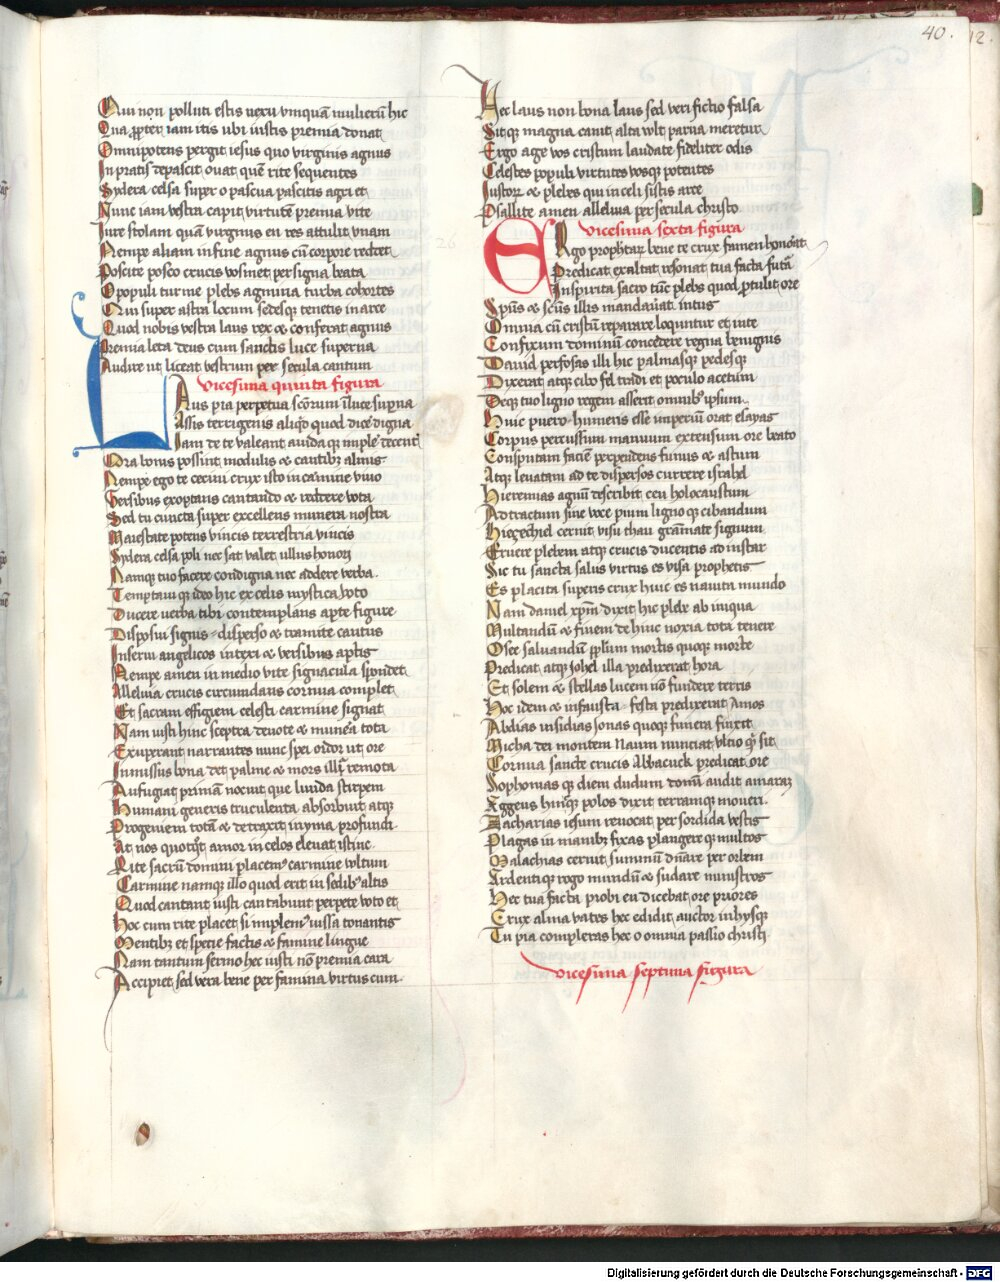 40. 12.
Qui non polluti estis uexu vmquā mulierū hic
Qua ꝓpter iam itis vbi iustis premia donat
Omnipotens pergit iesus quo virginis agnus
In pratis depascit ouat quē rite sequentes
Sydera celsa super o pascua pascitis agri et
Nunc iam vestra capit virtutē premia vite
Iure stolam quā virgmis en res attulit vnam
Nempe aliam in fine agnus cū corpore reddet
Poscite posco crucis vosmet per signa beata
O populi turme plebs agmina turba cohortes
Qui super astra locum sedesq tenetis in arce
Quod nobis vestra laus rex et conferat agnus
Premia leta deus cum sanctis luce superna
Audire ut liceat vestrum per secula cantum
vicesima quinta figura
Laus pia perpetua scōrum ī luce supna
Assis terrigenis aliqd quod dicē digna
Iam de te valeant auida qz imple decent
Cora bonis possint modulis et cantibz almis
Nempe ego te cecini crux isto in carmine viuo
Versibus exoptans cantando et reddere vota
Sed tu cuncta super excellens munera nostra
Maiestate potens vincis terrestria vincis
Sydera celsa poli nec sat valet ullus honori
Namque tuo facere condigna nec addere verba.
Temptam qz ideo hic ex celis mystica voto
Ducere uerba tibi contemplans apte figure
Disposui signis disperso et tramite cautus
Inserui angelicos intexi et versibus aptis
Nempe amen in medio vite signacula spondet
Alleluia crucis circumdans cornua complet
Et sacram effigiem celesti carmine signat
Nam iusti hinc sceptra deuote et munera tota
Exuperant narrantes nunc spei ordor ut ore
Inmissus bona det palme et mors illi remota
Aufugiat primā nocuit que liuida stirpem
Humani generis truculenta absorbuit atqz
Progeniem totā et detraxit in yma profundi
At nos quotqt amor in celos eleuat istinc
Rite sacrū domini placem carmine vultum
Carmine namque illo quod erit in sedibz altis
Quod cantant iusti cantabunt perpete voto et
Hoc cum rite placet si implem iussa tonantis
Mentibz et specie factis et famine lingue
Nam tantum sermo hec iusti nō premia cara
Accipiet sed vera bene per famina virtus cum
Hec laus non bona laus sed veri fictio falsa
Sitqz magna canit alta vlt parua meretur
Ergo age vos cristum laudate fideliter odis
Celestes populi virtutes vosqz potentes
Iustorz et plebes qui in celi sistis arce
Psallite amen alleluia per secula christo
vicesima sexta figura
26
ERgo prophetaz bene te crux famen honorat
Predicat exaltat resonat tua facta futā
Inspirita sacro tūc plebs quod ꝓtulit ore
Spūs et scūs illis mandauāt intus
Omnia cū cristū reparare loquntur et in te
Confixum dominū concedere regna benignis
Dauid perfosas illi hic palmasqz pedesqz
Dixerat atqz cibo fel tradi et poculo acetum
Deqz tuo ligno regem asserit omnibz ipsum
Huic puero humeris esse imperiū orat esayas
Corpus percussum manuum extensum ore beato
Consputam faciē perpendens funus et astum
Atqz leuatam ad te dispersos currere israhel
Hieremias agnū describit ceu holocaustum
Ad tractum sine voce pium ligno qz cibandum
Hiezechiel cernit visu thau gramate signum
Eruere plebem atqz crucis ducentis ad instar
Sic tu sancta salus virtus es visa prophetis
Es placita superis crux huic es nauita mundo
Nam daniel xpm dixit hic plebe ab iniqua
Multandū et finem de hinc noxia tota tenere
Osee saluandū pplum mortis quoqz morte
Predicat atqz Johel illa predixerat hora
Et solem et stellas lucem nō fundere terris
Hoc idem et infausta festa predixerat Amos
Abdias insidias Jonas quoqz funera finxit
Micha dei montem Naum nunciat vltio qz sit
Cornua sancte crucis Abbacuck predicat ore
Sophonias qz diem dudum domī audit amaraz
Aggeus hincqz polos dixit terramqz moueri.
Zacharias iesum reuocat per sordida vestis
Plagas in manibz fixas plangere qz multos
Malachias cernit summū dnare per orbem
Ardentiqz rogo mundū et sudare ministros
Hec tua facta probi en dicebat ore priores
Crux alma vates hec edidit auctor in hysqz
Tu pia compleras hec o omnia passio christi
vicesima septima figura
Digitalisierung gefördert durch die Deutsche Forschungsgemeinschaft - DFG